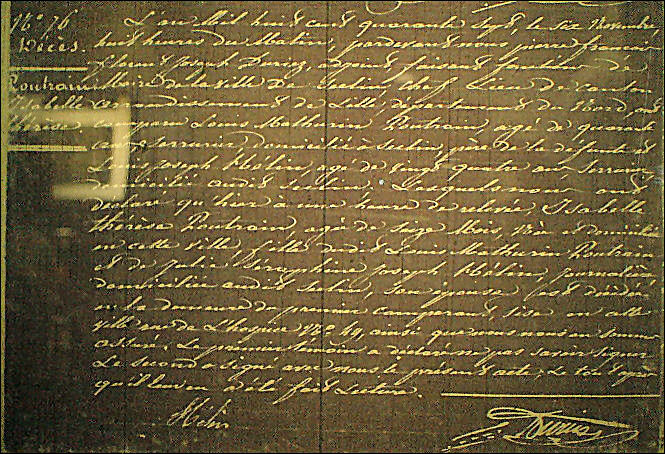 N.° 76
Décès.
Routrain
Isabelle
Thérèse.
L'an Mil huit cent quarante Sept, le six Novembre,
huit heures du Matin, pardevant nous pierre francois
Joseph Duriez, adjoint, faisant fonction de
Maire de la ville De Seclin, chef Lieu de canton
arrondissement de Lille, département du Nord, est
comparu Louis Mathurin Routrain, agé de quarante
ans, serrurier, domicilié à Seclin, père de la défunte et
Louis Joseph Hélin, agé de vingt quatre ans, Serrurier,
domicilié audit Seclin. Lesquels nous ont
déclaré qu'hier à une heure de relevée, Isabelle
thérèse Routrain, agée de Seize Mois, née et domiciliée
en cette ville, fille dudit Louis Mathurin Routrain
et de Julie Séraphine Joseph Hélin, journalière
domiciliée audit Seclin, son épouse, est décédée
en la demeure du premier comparant, sise en cette
ville rue de L'hospice N.° 49, ainsi que nous nous en sommes
assuré. Le premier témoin a déclaré ne pas savoir signer
Le second a signé avec nous le présent acte, Le tout après
qu'il leur en a été fait Lecture.
Hélin
Duriez